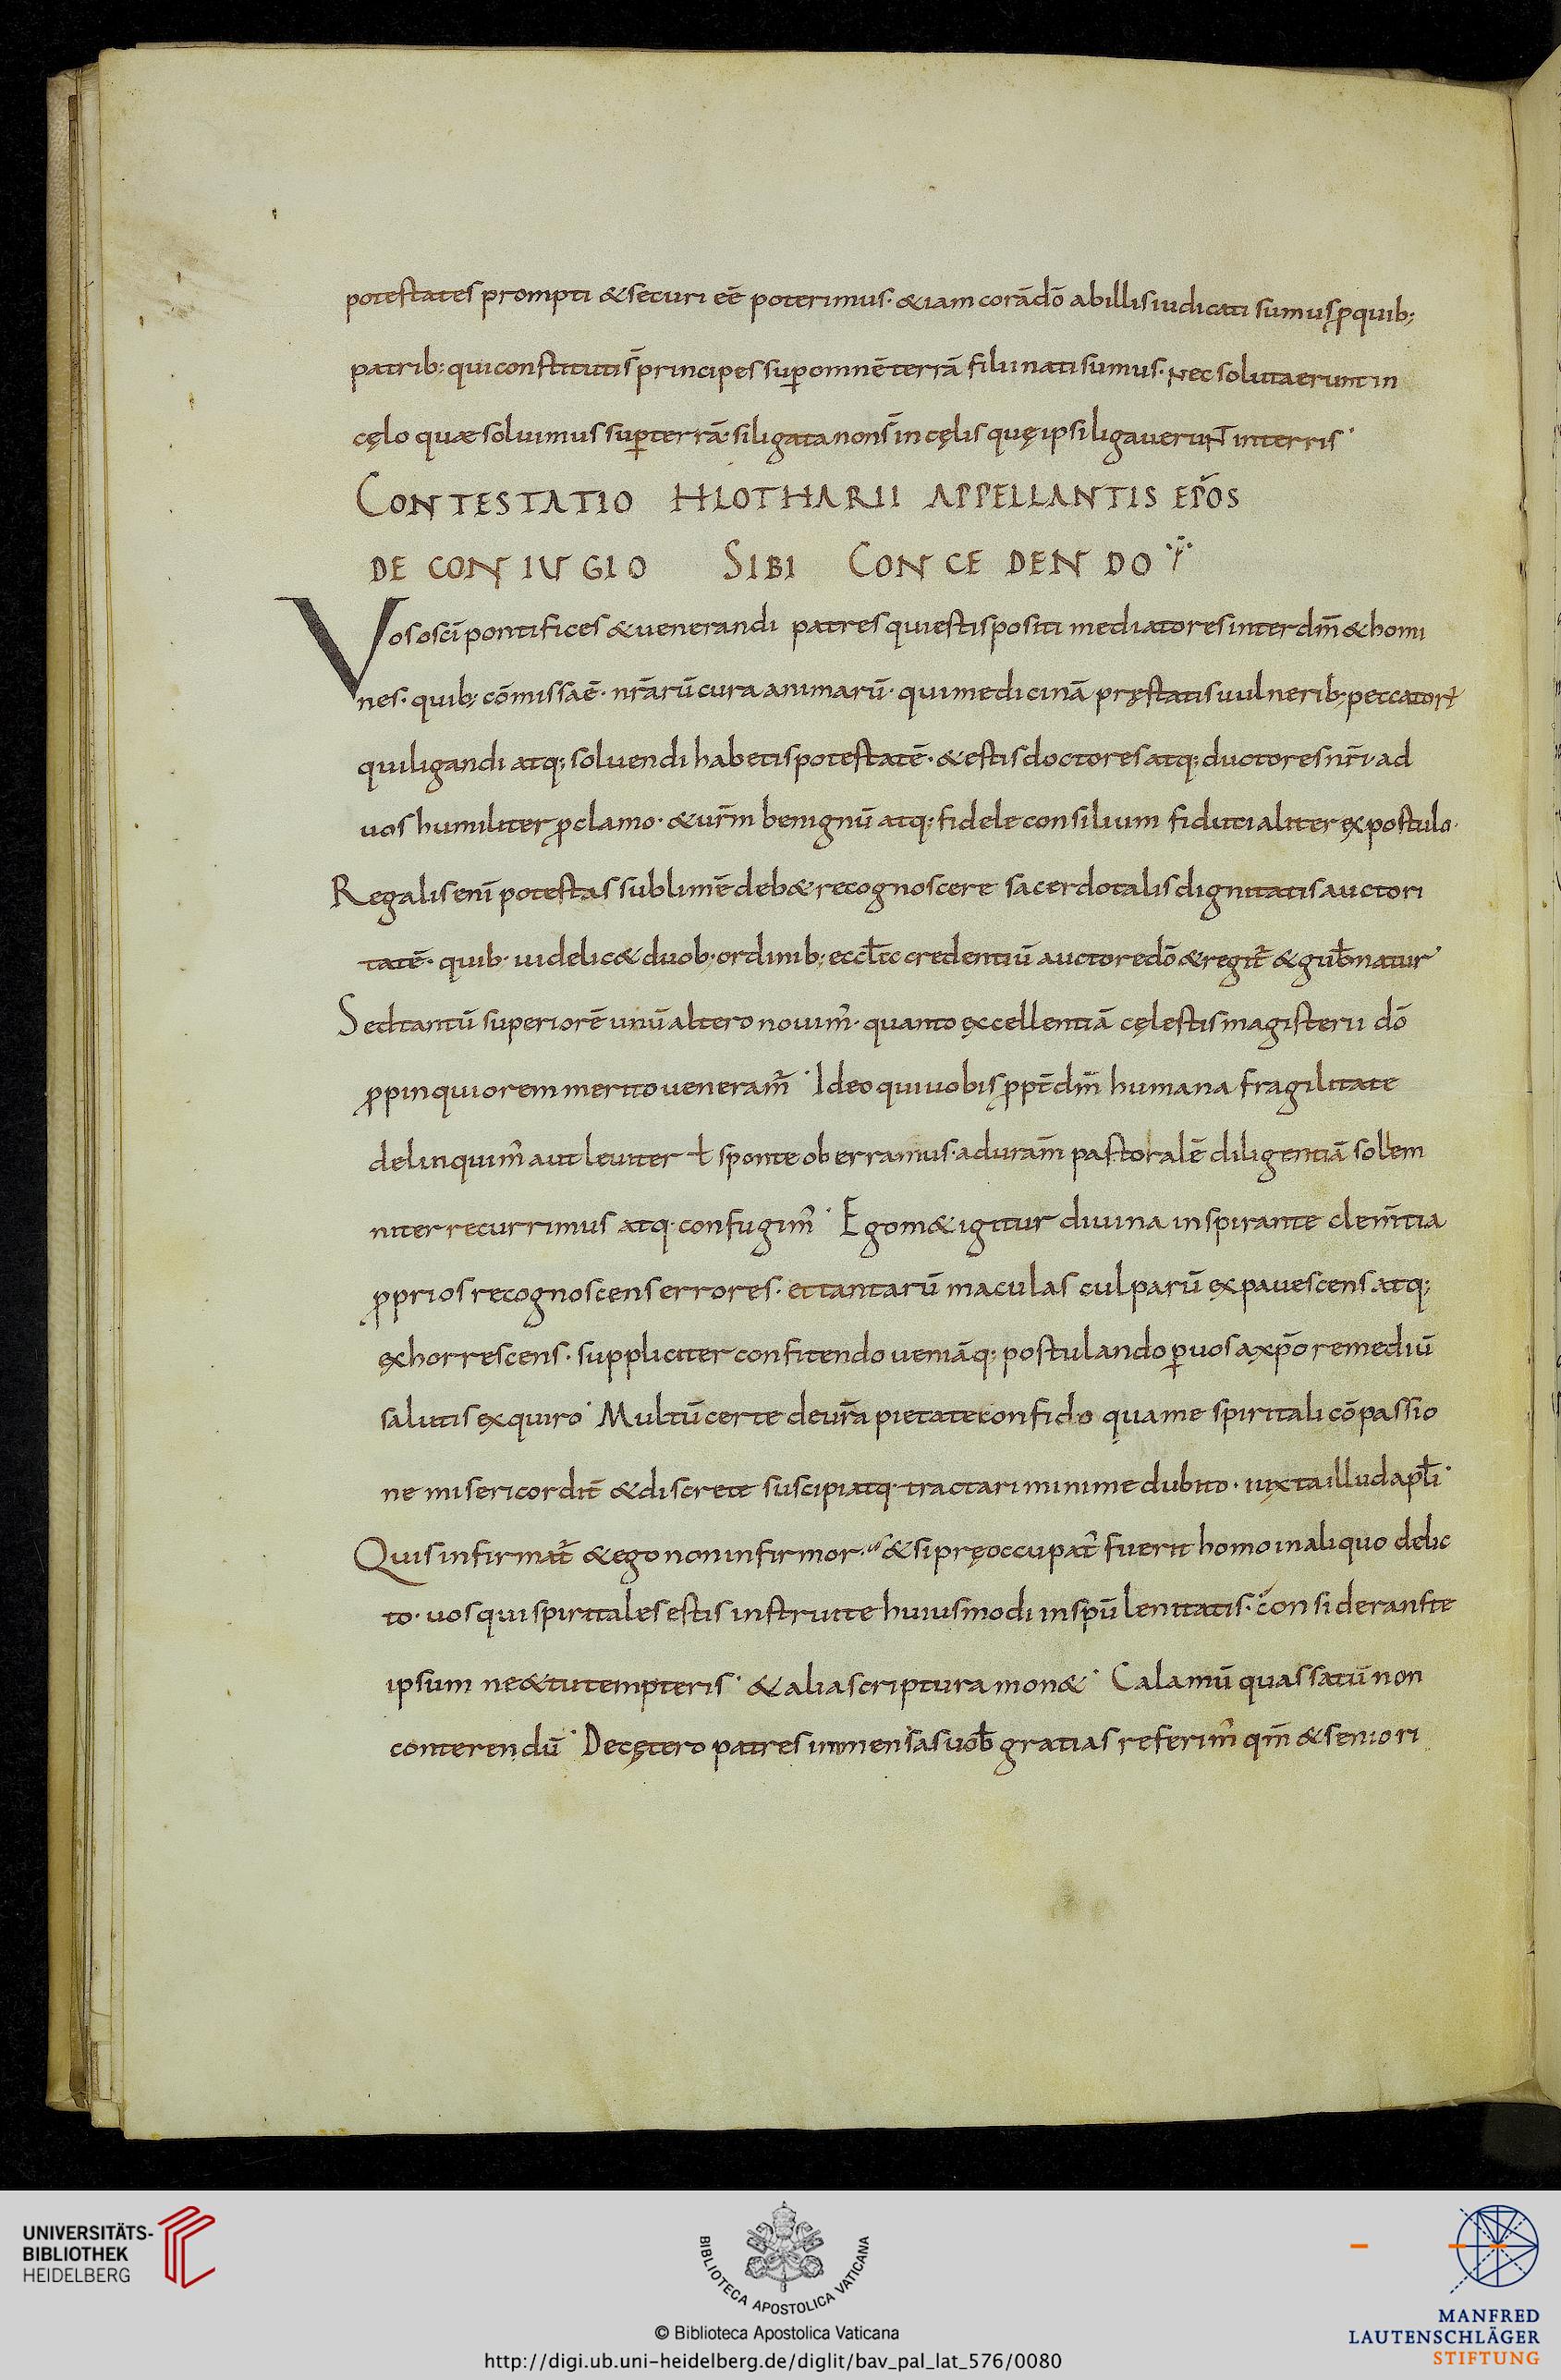 potestates prompti & securi eē poterimus · & iam corā dō ab illis iudicati sumus p̱ quib;
patrib: qui constituti s̄ principes sup̱ omnē terrā filii nati sumus · Nec soluta erunt in
cęlo quæ soluimus sup̱ terrā · si ligata non s̄ in cęlis quę ipsi ligauerunt in terris ·
CONTESTATIO HLOTHARII APPELLANTIS EP̄OS
DE CONIUGIO SIBI CONCEDENDO
Vos o sc̄i pontifices & uenerandi patres qui estis positi mediatores inter dm̄ & homi
nes · quib; cōmissa ē · nr̄arū cura animarū · qui medicinā pręstatis uulnerib; peccatorꝝ
qui ligandi atq; soluendi habetis potestatē · & estis doctores atq; ductores nr̄i · ad
uos humiliter ꝓclamo · & ur̄m benignū atq; fidele consilium fiducialiter ęxpostulo ·
Regalis enī potestas sublimē deb& recognoscere sacerdotalis dignitatis auctori
tatē · quib · uidelic& duob · ordinib; eccl̄ie credentiū auctore dō & regit̄ & gub̄natur ·
Sed tantū superiorē unū altero nouim̄ · quanto ęxcellentiā cęlestis magisterii dō
ꝓpinquiorem merito ueneram̄ · Ideo qui uobis ꝓpt̄ dm̄ humana fragilitate
delinquim̄ aut leuiter ł sponte oberramus · ad uram̄ pastoralē diligentiā sollem
niter recurrimus atq · confugim̄ · Ego m& igitur diuina inspirante clem̄tia
ꝓprios recognoscens errores · et tantarū maculas culparū ęxpauescens atq;
ęxhorrescens · suppliciter confitendo ueniāq; postulando ꝑ uos a xp̄o remediū
salutis ęxquiro · Multū certe de ur̄a pietate confido qua me spiritali cōpassio
ne misericordit̄ & discrete suscipi atq · tractari minime dubito · iuxta illud apl̄i ·
Quis infirmat̄ & ego non infirmor · & si pręoccupat̄ fuerit homo in aliquo delic
to · uos qui spiritales estis instruite huiusmodi in spū lenitatis · considerans te
ipsum ne & tu tempteris · & alia scriptura mon& · Calamū quassatū non
conterendū · De cętero patres inmensas uob̄ gratias referim̄ qm̄ & seniori
UNIVERSITÄTS-
BIBLIOTHEK
HEIDELBERG
BIBLIOTECA APOSTOLICA VATICANA
© Biblioteca Apostolica Vaticana
http://digi.ub.uni-heidelberg.de/diglit/bav_pal_lat_576/0080
MANFRED
LAUTENSCHLÄGER
STIFTUNG